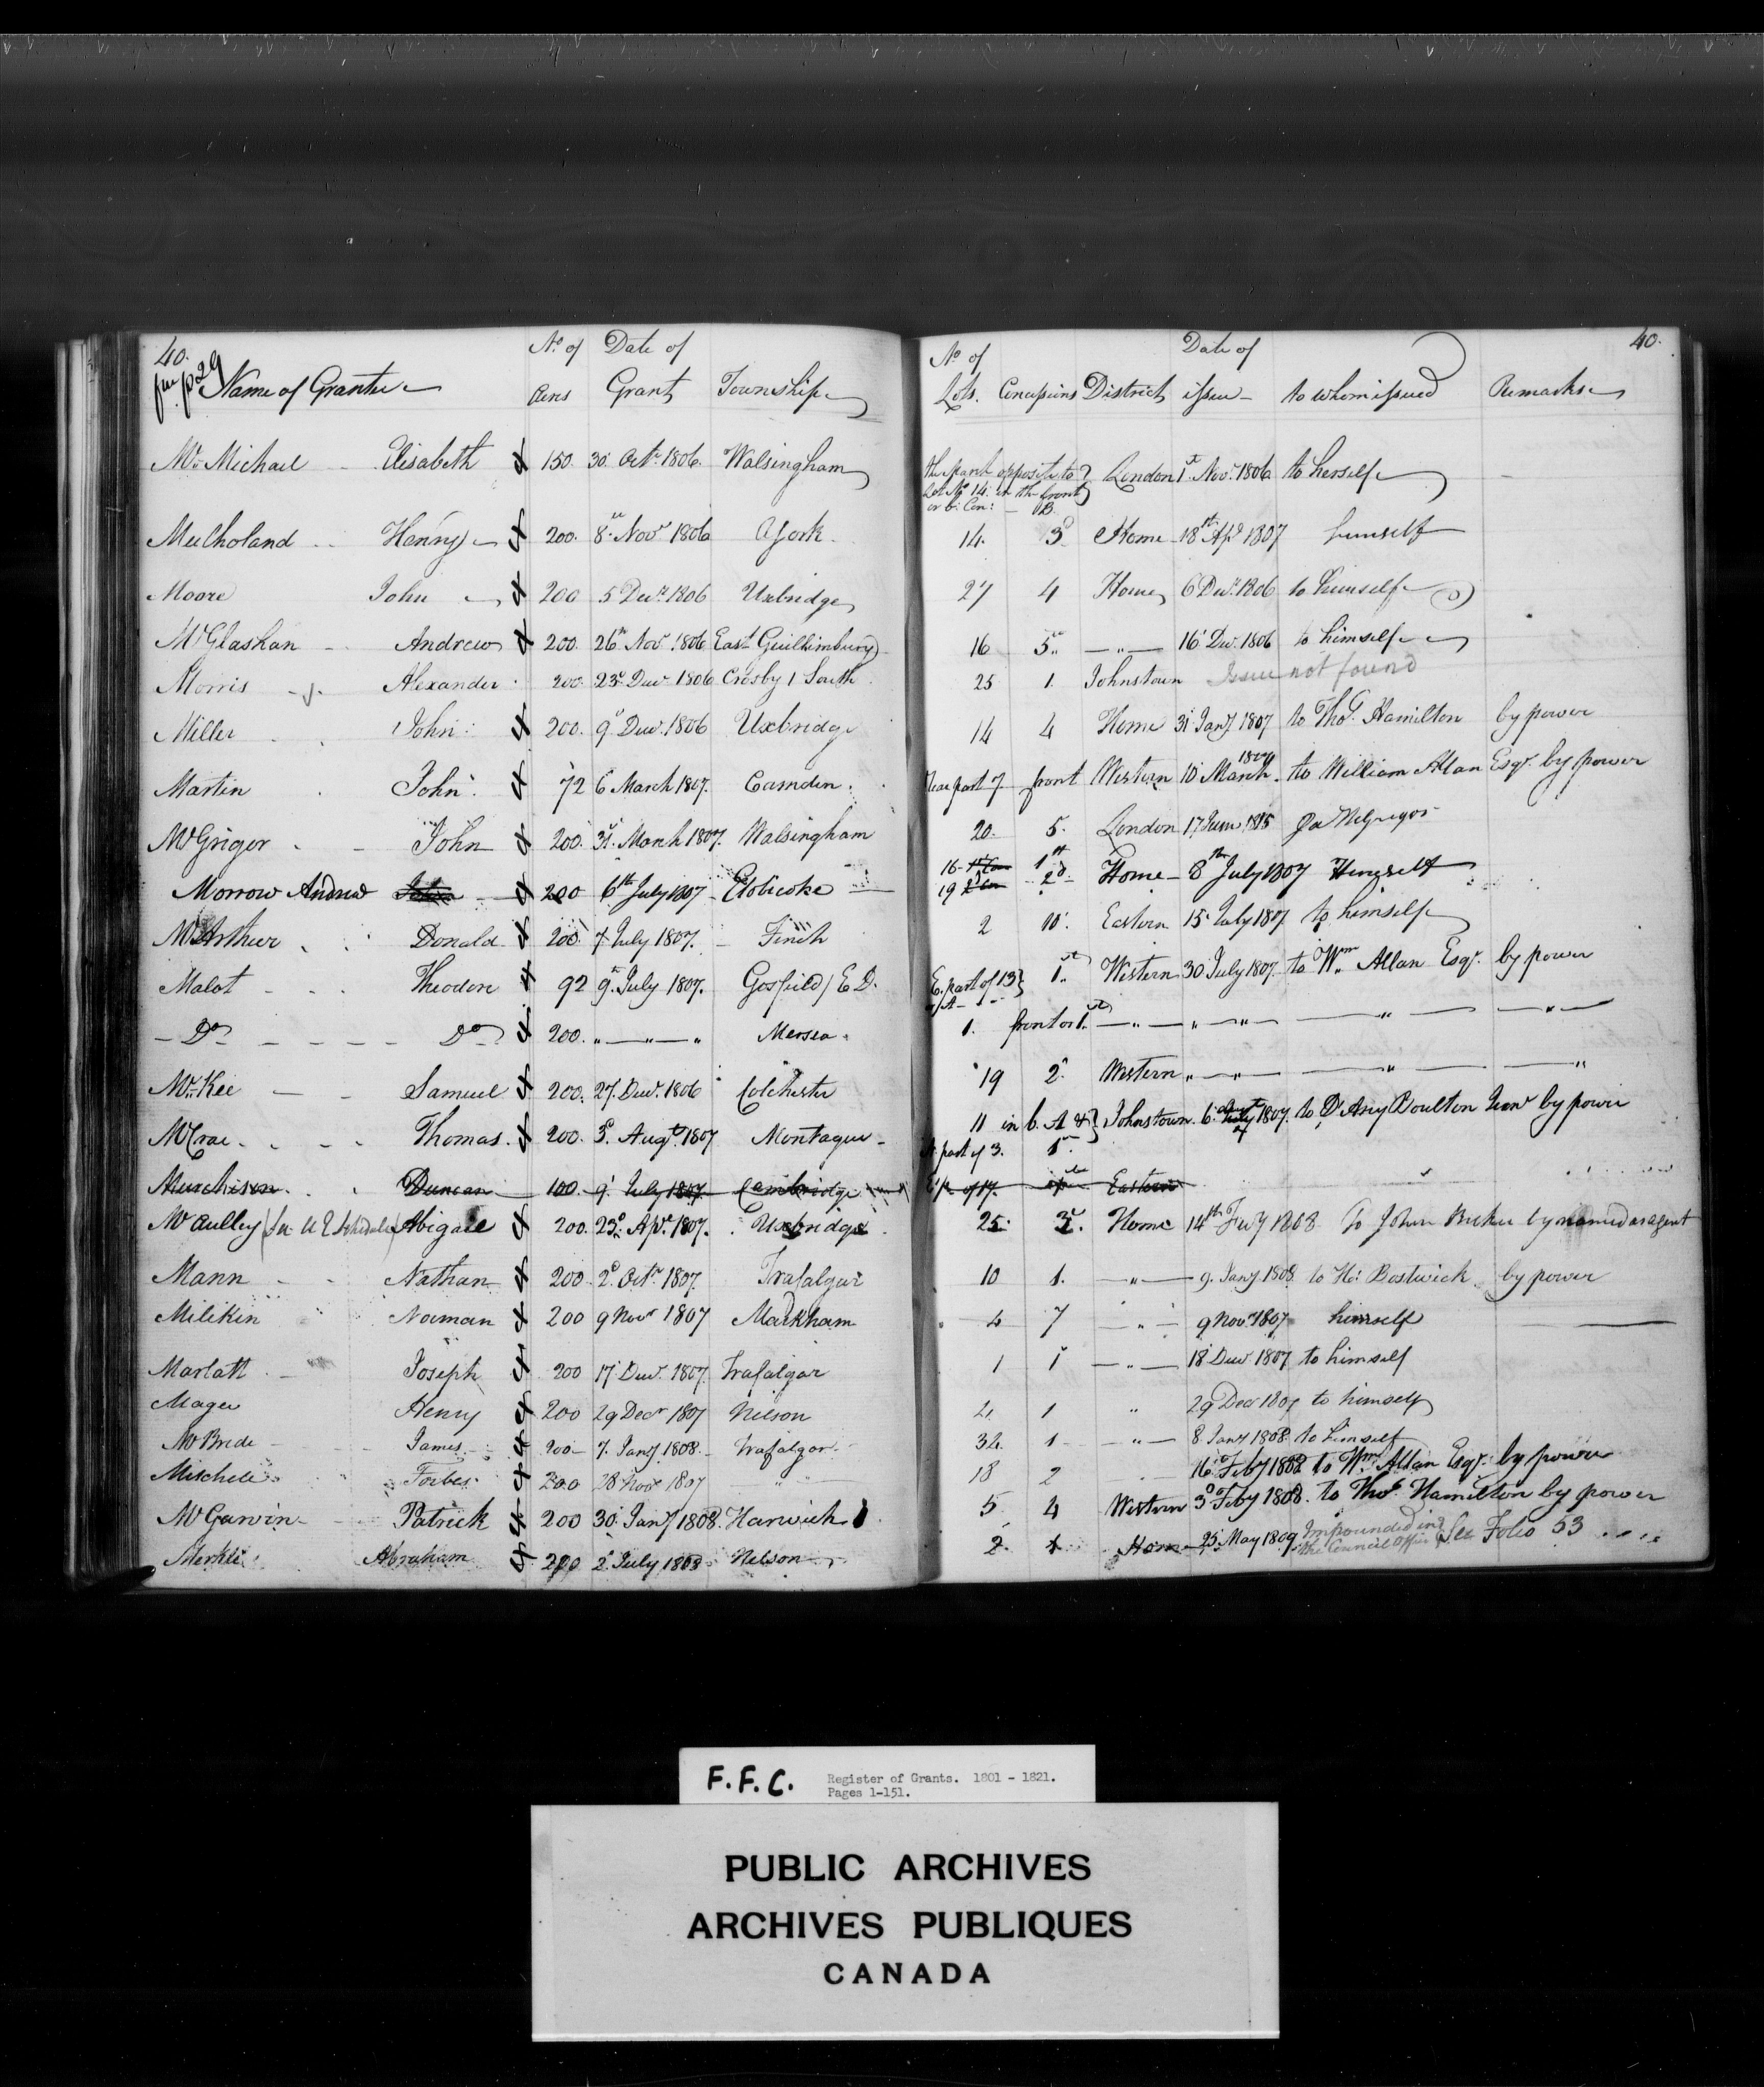 40. 40.
Name of Grantee No. of Acres Date of Grant Township No. of Lots. Concessions District Date of issue to whom issued Remarks
Mc Michael Elisabeth 150. 30. Octr. 1806. Walsingham opposite to Lot No. 14. in the front or b. Con: B. London 1st Novr. 1806 to herself
Mulholand Henry 200. 8th Novr 1806 York 14. 3d Home 18th Apl 1807 himself
Moore John 200 5 Decr. 1806 Uxbridge 27 4 Home 6 Decr. 1806 to himself
McGlashan Andrew 200. 26th Novr. 1806 East Guillimbury 16 5 — " — 16 Decr. 1806 to himself
Morris Alexander 200. 23d Decr 1806 Crosby / South 25 1. Johnstown Issue not found
Miller John 200. 9th Decr. 1806 Uxbridge 14 4 Home 31 Jany. 1807 to Thos. Hamilton by power
Martin John 72 6 March 1807. Camden Rear part 7. front Western 10 March 1807. to William Allan Esqr. by power
McGrigor John 200. 31. March 1807. Walsingham 20. 5. London 17 June 1815 McGregor
Morrow Andrew John 200 6th July 1807 Etobicoke 16 1st Con 1st 19 2d Con 2d Home 8th July 1807 Himself
McArthur Donald 200. 7. July 1807. Finch 2 10. Eastern 15. July 1807 to himself
Malot Theodore 92 9. July 1807. Gosfield / E D. E. part of 13 1st Western 30 July 1807 to Wm. Allan Esqr. by power
Do Do 200. " — " — " Mersea 1. front or 1st — " — " — " — " — " —
McKee Samuel 200. 27. Decr. 1806 Colchester 19 2d Western " — " — " — "
McCrae Thomas. 200. 3d. Augt. 1807 Montague 11 in b. A & Johnstown 6. 1807. to D'Arcy Boulton Junr by power
part of 3. 1st
Murchison Duncan 100. 9. July 1807 Cambridge of 17. Eastern
McAulley (In U E Schedule) Abigail 200. 23d. Apl. 1807. Uxbridge 25. 3d. Home 14th 1808 To John by named as agent
Mann Nathan 200. 2d. Octr. 1807. Trafalgar 10 1. — " — 9. Jany 1808 to Bostwick by power
Milikin Norman 200 9 Novr 1807 Markham 4 7 — " — 9 Novr. 1807 himself
Marlatt Joseph 200 17. Decr. 1807. Trafalgar 1 1 — " — 18 Decr. 1807 to himself
Magee Henry 200 29 Decr 1807 Nelson 2 1 " 29 Decr 1807 to himself
McBride James 200 7. Jany 1808. Trafalgar. 32. 1 — " — 8. Jany 1808 to himself
Michell Forbes 200 28 Novr 1807 18 2 16 Feby 1808 to Wm. Allan Esqr. by power
McGarvin Patrick 200 30. Jany 1808. Harwich 5. 4 Western 3d Feby 1808. to Thos. Hamilton by power
Merkle Abraham 200 2d July 1808 Nelson 2. 1 Home 25. May 1809 Impounded in the Council Office See Folio 53
F.F.C. Register of Grants. 1801 - 1821.
Pages 1-151.
PUBLIC ARCHIVES
ARCHIVES PUBLIQUES
CANADA